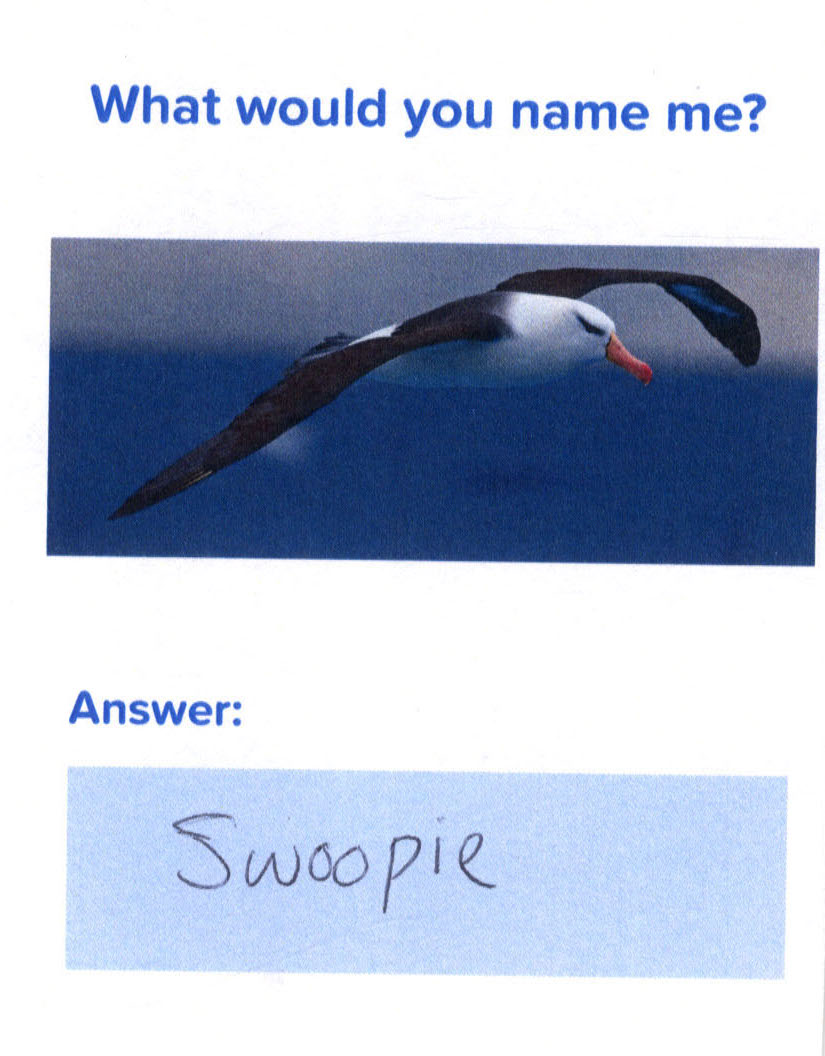 What would you name me?
Answer:
Swoopie